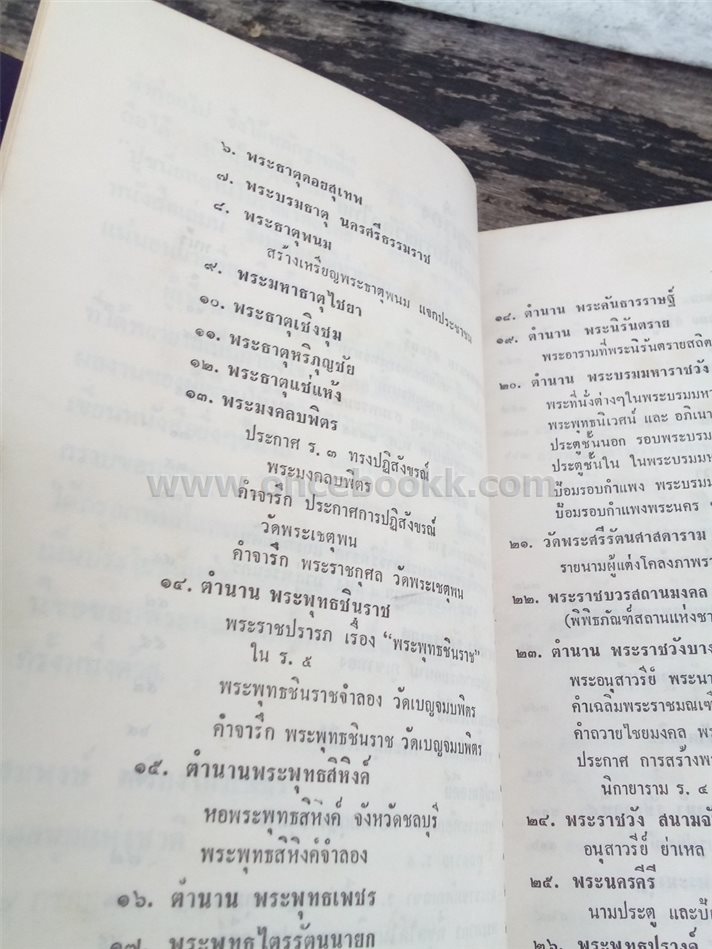 ๖. พระธาตุดอยสุเทพ
๗. พระบรมธาตุ นครศรีธรรมราช
๘. พระธาตุพนม
สร้างเหรียญพระธาตุพนม แจกประชาชน
๙. พระมหาธาตุไชยา
๑๐. พระธาตุเชิงชุม
๑๑. พระธาตุหริภุญชัย
๑๒. พระธาตุแช่แห้ง
๑๓. พระมงคลบพิตร
ประกาศ ร. ๓ ทรงปฏิสังขรณ์
พระมงคลบพิตร
คำจารึก ประกาศการปฏิสังขรณ์
วัดพระเชตุพน
คำจารึก พระราชกุศล วัดพระเชตุพน
๑๔. ตำนาน พระพุทธชินราช
พระราชปรารภ เรื่อง "พระพุทธชินราช"
ใน ร. ๕
พระพุทธชินราชจำลอง วัดเบญจมบพิตร
คำจารึก พระพุทธชินราช วัดเบญจมบพิตร
๑๕. ตำนานพระพุทธสิหิงค์
หอพระพุทธสิหิงค์ จังหวัดชลบุรี
พระพุทธสิหิงค์จำลอง
๑๖. ตำนาน พระพุทธเพชร
๑๗. พระพุทธไตรรัตนนายก
๑๘. ตำนาน พระคันธารราษฎร์
๑๙. ตำนาน พระนิรันตราย
พระอารามที่พระนิรันตรายสถิต
๒๐. ตำนาน พระบรมมหาราชวัง
พระที่นั่งต่างๆในพระบรมมห
พระพุทธนิเวศน์ และ อภิเนา
ประตูชั้นนอก รอบพระบรม
ประตูชั้นใน ในพระบรมมห
ป้อมรอบกำแพง พระบรมม
ป้อมรอบกำแพงพระนคร
๒๑. วัดพระศรีรัตนศาสดาราม
รายนามผู้แต่งโคลงภาพรา
๒๒. พระราชบวรสถานมงคล
(พิพิธภัณฑ์สถานแห่งชา
๒๓. ตำนาน พระราชวังบาง
พระอนุสาวรีย์ พระนา
คำเฉลิมพระราชมณเฑี
คำถวายไชยมงคล พร
ประกาศ การสร้างพร
นิกายาราม ร. ๔
๒๔. พระราชวัง สนามจั
อนุสาวรีย์ ย่าเหล
๒๕. พระนครคีรี
นามประตู และป้อ
๒๖. พระพุทธปรางค์
www.oncebookk.com